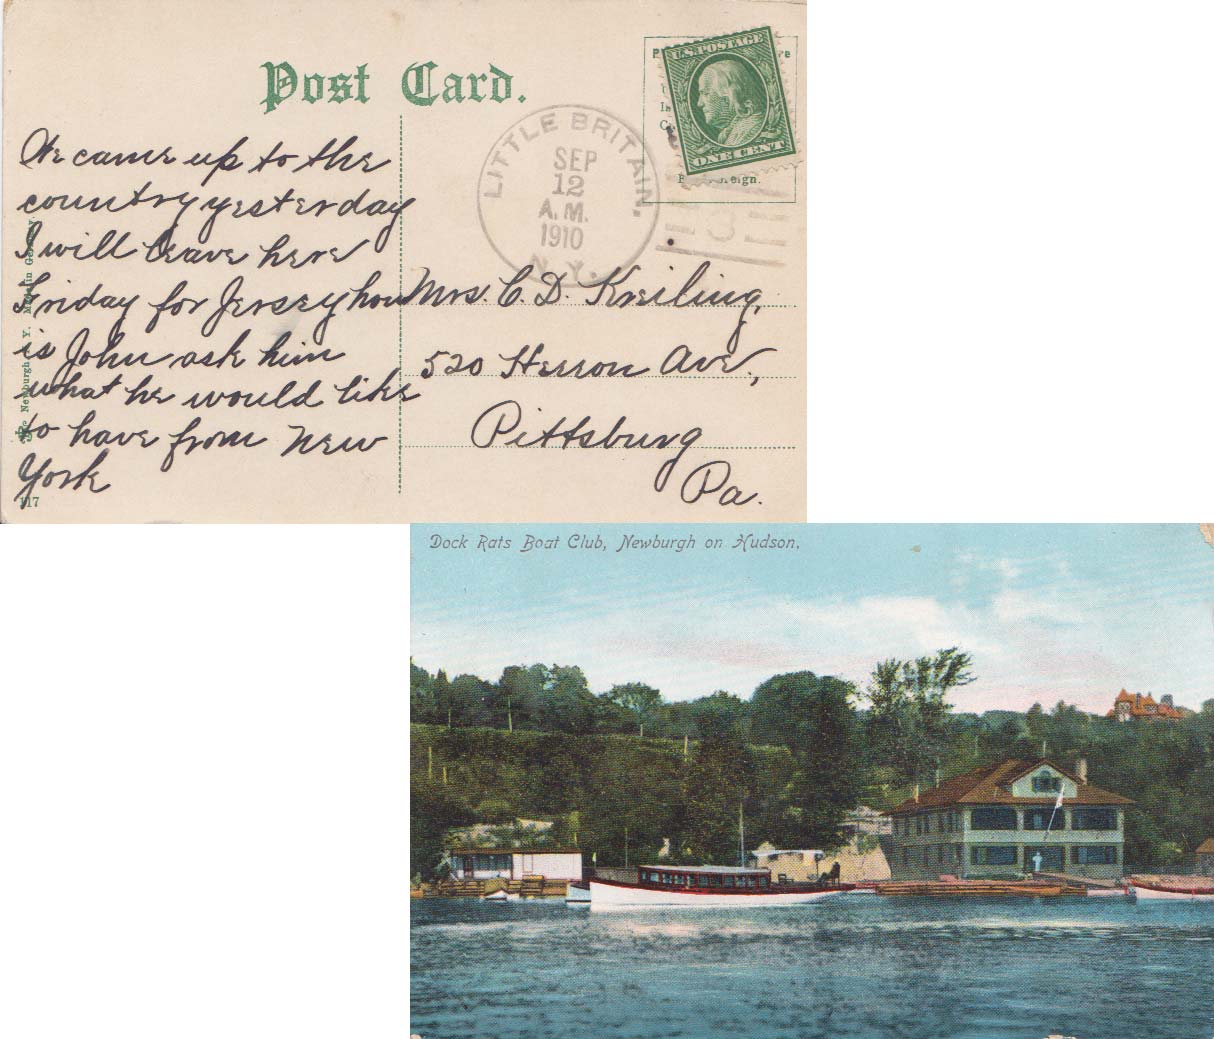 Post Card.
U.S. POSTAGE
ONE CENT
LITTLE BRITAIN,
SEP
12
A.M.
1910
N.Y.
We came up to the
country yesterday
I will leave here
Friday for Jersey how
is John ask him
what he would like
to have from New
York
Mrs. C. D. Kreiling,
520 Herron Ave.,
Pittsburg
Pa.
Newburgh N. Y. Made in Germany.
117
Dock Rats Boat Club, Newburgh on Hudson.